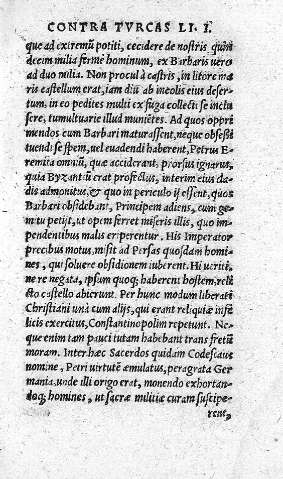 CONTRA TVRCAS LI. I.
que ad extremũ potiti, cecidere de nostris, quin
decim milia fermè hominum, ex Barbaris uero
ad duo milia. Non procul à castris, in litore ma
ris castellum erat, iam diũ ab incolis eius deser-
tum, in eo pedites multi ex fuga collecti se inclu
sere, tumultuarie illud muniẽtes. Ad quos oppri
mendos cum Barbari maturassent, neque obsessi
tuendi se spem, uel euadendi haberent, Petrus E-
remita omniũ, quæ acciderant, prorsus ignarus,
quia Byzantiũ erat profectus, interim eius cla-
dis admonitus, & quo in periculo ij essent, quos
Barbari obsidebant, Principem adiens, cum gem
tu petijt, ut opem ferret miseris illis, quo im-
pendentibus malis eriperentur. His Imperator
precibus motus, misit ad Persas quosdam homi-
nes, qui soluere obsidionem iuberent. Hi ueriti,
ne re negata, ipsum quoq; haberent hostem, reli
cto castello abierunt. Per hunc modum liberati
Christiani unà cum alijs, qui erant reliquiæ infe
licis exercitus, Constantinopolim repetunt. Ne-
que enim tam pauci tutam habebant trans fretũ
moram. Inter hæc Sacerdos quidam Codescalcus
nomine, Petri uirtutẽ æmulatus, peragrata Ger
mania, unde illi origo erat, monendo exhortan-
doq; homines, ut sacræ militiæ curam suscipe-
rent,